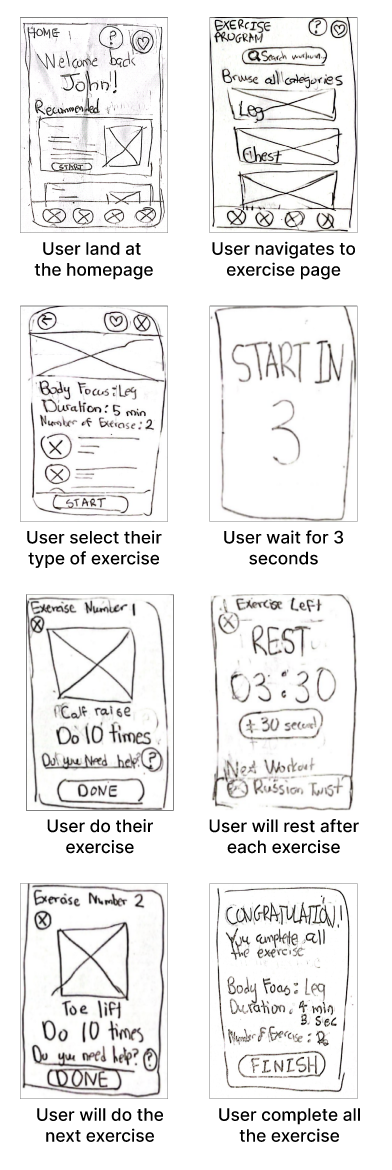 HOME
?
Welcome back
John!
Recommended
START
User land at
the homepage
EXERCISE
PROGRAM
?
Search workout
Browse all categories
Leg
Chest
User navigates to
exercise page
Body Focus: Leg
Duration: 5 min
Number of Exercise: 2
START
User select their
type of exercise
START IN
3
User wait for 3
seconds
Exercise Number 1
Calf raise
Do 10 times
Do you Need help?
?
DONE
User do their
exercise
1 Exercise Left
REST
03:30
± 30 second
Next Workout
Russian Twist
User will rest after
each exercise
Exercise Number 2
Toe lift
Do 10 times
Do you need help?
?
DONE
User will do the
next exercise
CONGRATULATION!
You complete all
the exercise
Body Focus: Leg
Duration: 4 min
3 sec
Number of Exercise:
FINISH
User complete all
the exercise